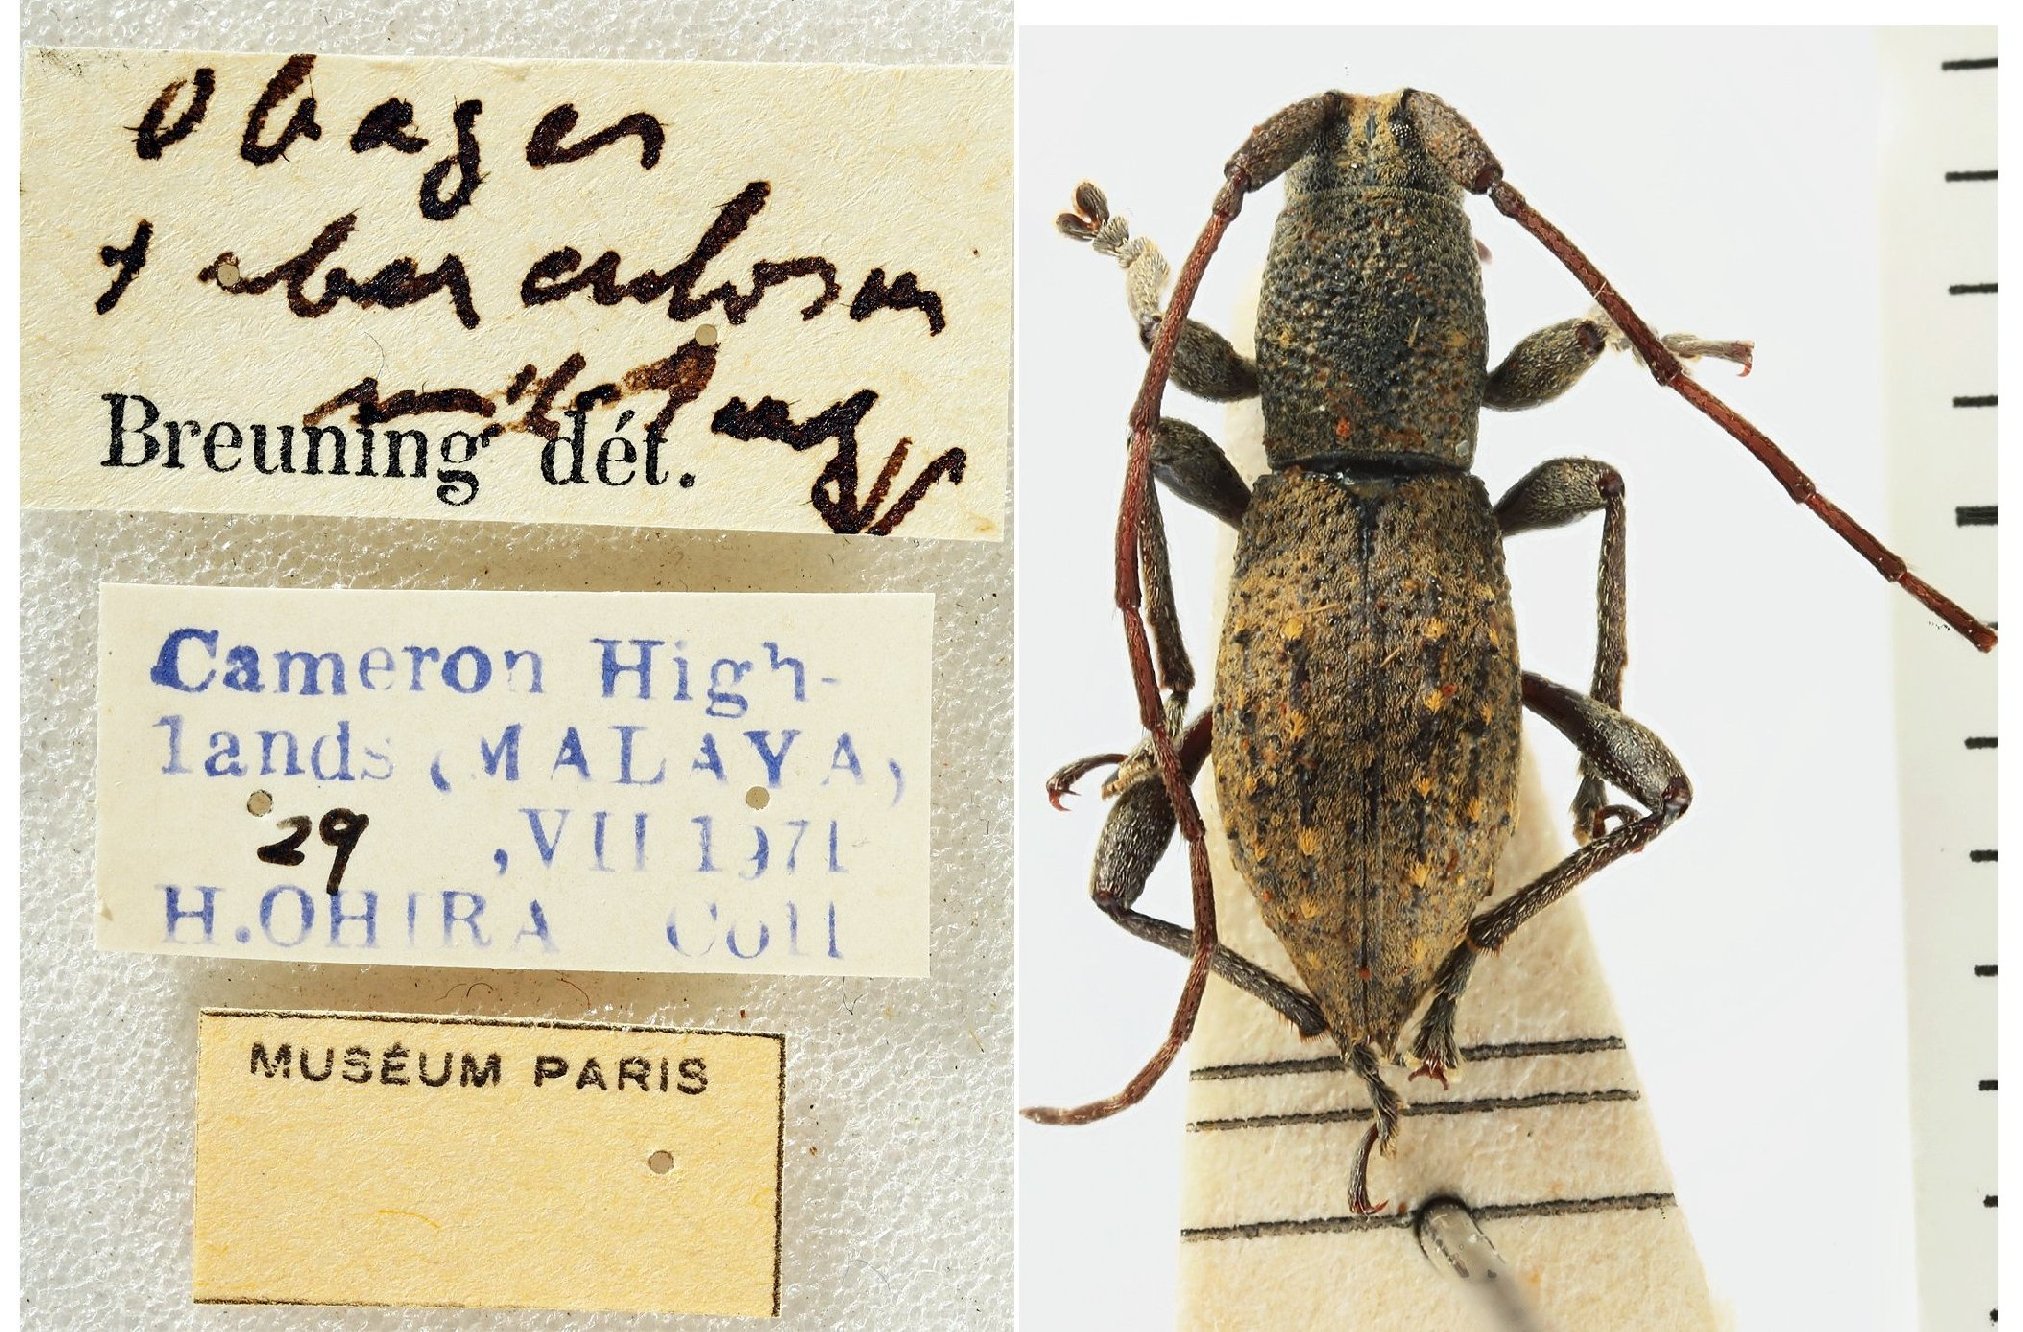 Obages
tuberculosus
mihi Typ
Breuning dét.
Cameron High-
lands (MALAYA)
29 ,VII 1971
H.OHIRA Coll
MUSÉUM PARIS